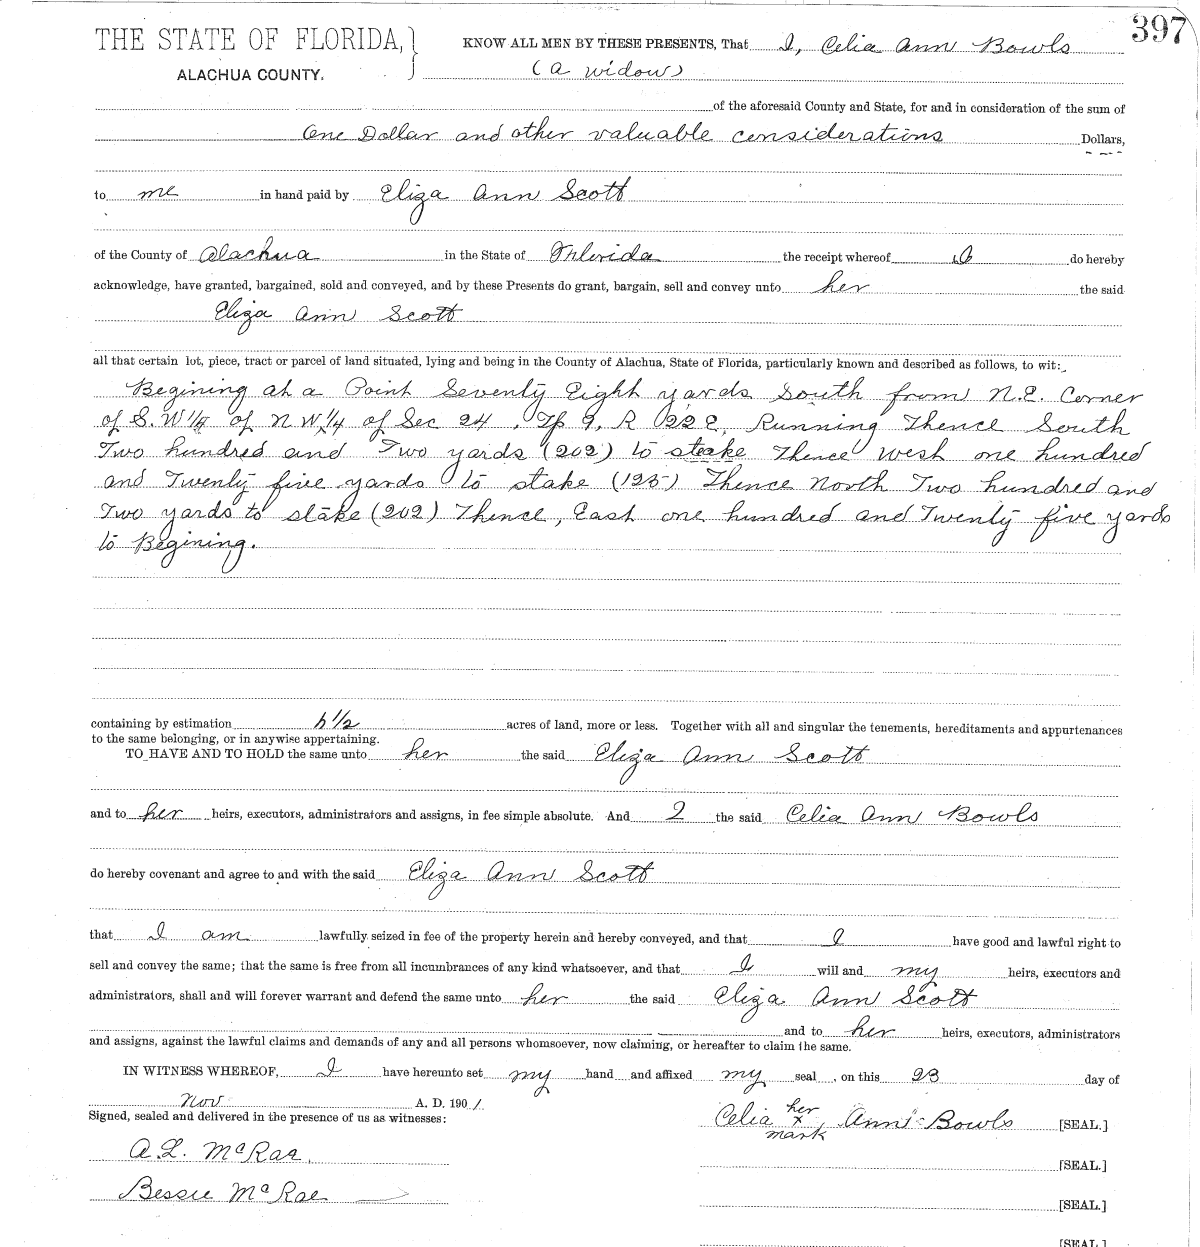 397
THE STATE OF FLORIDA, KNOW ALL MEN BY THESE PRESENTS, That I, Celia Ann Bowls
ALACHUA COUNTY. (a widow)
of the aforesaid County and State, for and in consideration of the sum of
One Dollar and other valuable considerations Dollars,
to me in hand paid by Eliza Ann Scott
of the County of Alachua in the State of Fhlorida the receipt whereof I do hereby
acknowledge, have granted, bargained, sold and conveyed, and by these Presents do grant, bargain, sell and convey unto her the said
Eliza Ann Scott
all that certain lot, piece, tract or parcel of land situated, lying and being in the County of Alachua, State of Florida, particularly known and described as follows, to wit:
Begining at a Point Seventy Eight yards South from N.E. Corner
of S.W 1/4 of N W 1/4 of Sec 24, Tp 9, R 22 E, Running Thence South
Two hundred and Two yards (202) to steake Thence West one hundred
and Twenty five yards to stake (125) Thence North Two hundred and
Two yards to stake (202) Thence, East one hundred and Twenty five yards
to Begining.
containing by estimation 1/2 acres of land, more or less. Together with all and singular the tenements, hereditaments and appurtenances
to the same belonging, or in anywise appertaining.
TO HAVE AND TO HOLD the same unto her the said Eliza Ann Scott
and to her heirs, executors, administrators and assigns, in fee simple absolute. And I the said Celia Ann Bowls
do hereby covenant and agree to and with the said Eliza Ann Scott
that I am lawfully seized in fee of the property herein and hereby conveyed, and that I have good and lawful right to
sell and convey the same; that the same is free from all incumbrances of any kind whatsoever, and that I will and my heirs, executors and
administrators, shall and will forever warrant and defend the same unto her the said Eliza Ann Scott
and to her heirs, executors, administrators
and assigns, against the lawful claims and demands of any and all persons whomsoever, now claiming, or hereafter to claim the same.
IN WITNESS WHEREOF, I have hereunto set my hand and affixed my seal, on this 23 day of
Nov A. D. 1901
Signed, sealed and delivered in the presence of us as witnesses:
Celia her x mark Ann Bowls [SEAL.]
A.L. McRae
[SEAL.]
Bessie McRae
[SEAL.]
[SEAL.]